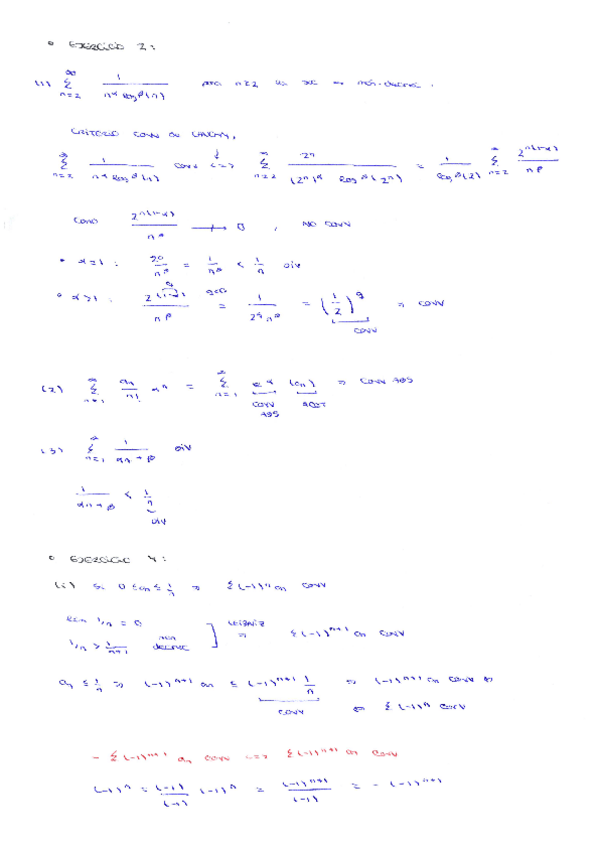 • EXERCICIO 2:
(1) ∑_{n=2}^{∞} 1/(n^α log^β(n)) para n≥2
CRITERIO CONV DE CAUCHY,
∑_{n=2}^{∞} 1/(n^α log^β(n)) conv <=> ∑_{n=2}^{∞} 2^n/((2^n)^α log^β(2^n)) = 1/log^β(2) ∑_{n=2}^{∞} 2^{n(1-α)}/n^β
COMO 2^{n(1-α)}/n^β ↛ 0, NO CONV
• α=1: 2^0/n^β = 1/n^β < 1/n DIV
• α>1: 2^{n(1-α)}/n^β = 1/(2^q n^β) = (1/2)^q => CONV
CONV
(2) ∑_{n=1}^{∞} a_n/n! x^n = ∑_{n=1}^{∞} e^x (a_n) => CONV ABS
CONV ABS ACOT
(3) ∑_{n=1}^{∞} 1/(αn+β) DIV
1/(αn+β) < 1/n
DIV
• EXERCICIO 4:
(i) Si 0≤a_n≤1/n => ∑(-1)^n a_n CONV
lim 1/n = 0
1/n > 1/(n+1) MON DECREC ] LEIBNIZ => ∑(-1)^{n+1} a_n CONV
a_n ≤ 1/n => (-1)^{n+1} a_n ≤ (-1)^{n+1} 1/n => (-1)^{n+1} a_n CONV <=>
CONV <=> ∑(-1)^n CONV
- ∑(-1)^{n+1} a_n CONV <=> ∑(-1)^{n+1} a_n CONV
(-1)^n = (-1)/(-1) (-1)^n = (-1)^{n+1}/(-1) = -(-1)^{n+1}